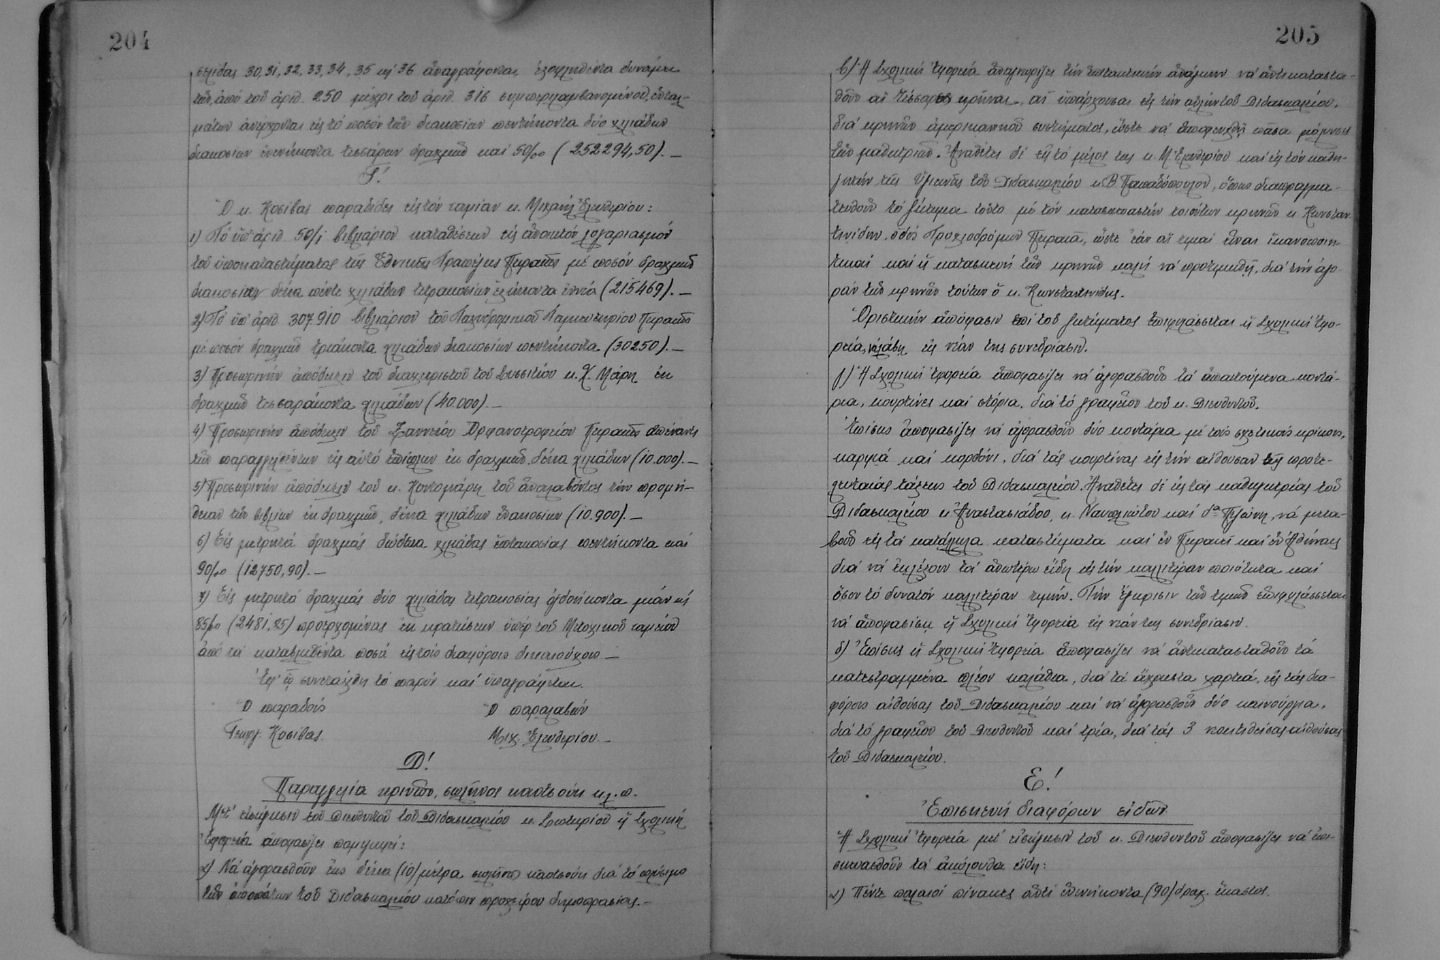 204
σελίδας 30, 31, 32, 33, 34, 35 καὶ 36 ἀναγράφονται ἐξοφληθέντα δυνάμει
τῶν ἀπὸ τοῦ ἀριθ. 250 μέχρι τοῦ ἀριθ. 316 συμπεριλαμβανομένου, ἐνταλ-
μάτων ἀνέρχονται εἰς τὸ ποσὸν τῶν διακοσίων πεντήκοντα δύο χιλιάδων
διακοσίων ἐνενήκοντα τεσσάρων δραχμῶν καὶ 50‰ (252294,50). —
Ὁ κ. Κοσίβας παραδίδει εἰς τὸν ταμίαν κ. Μιχαὴλ Ἐλευθερίου:
1) Τὸ ὑπ' ἀριθ. 50/1 βιβλιάριον καταθέσεων εἰς ἀνοικτὸν λογαριασμὸν
τοῦ ὑποκαταστήματος τῆς Ἐθνικῆς Τραπέζης Πειραιῶς μὲ ποσὸν δραχμῶν
διακοσίων δέκα πέντε χιλιάδων τετρακοσίων ἑξήκοντα ἐννέα (215469). —
2) Τὸ ὑπ' ἀριθ. 307910 βιβλιάριον τοῦ Ταχυδρομικοῦ Ταμιευτηρίου Πειραιῶς
μὲ ποσὸν δραχμῶν τριάκοντα χιλιάδων διακοσίων πεντήκοντα (30250). —
3) Προσωρινὴν ἀπόδειξιν τοῦ διαχειριστοῦ τοῦ Συσσιτίου κ. Χ. Μάρη ἐκ
δραχμῶν τεσσαράκοντα χιλιάδων (40.000). —
4) Προσωρινὴν ἀπόδειξιν τοῦ Ζαννείου Ὀρφανοτροφείου Πειραιῶς ἀπέναντι
τῶν παραγγελθέντων εἰς αὐτὸ ἐπίπλων ἐκ δραχμῶν δέκα χιλιάδων (10.000). —
5) Προσωρινὴν ἀπόδειξιν τοῦ κ. τοῦ ἀναλαβόντος τὴν προμή-
θειαν τῶν βιβλίων ἐκ δραχμῶν, δέκα χιλιάδων ἐννεακοσίων (10.900). —
6) Εἰς μετρητὰ δραχμὰς δώδεκα χιλιάδας ἑπτακοσίας πεντήκοντα καὶ
90‰ (12750,90). —
7) Εἰς μετρητὰ δραχμὰς δύο χιλιάδας τετρακοσίας ὀγδοήκοντα μίαν καὶ
85‰ (2481,85) προερχομένας ἐκ κρατήσεων ὑπὲρ τοῦ Μετοχικοῦ ταμείου
ἀπὸ τὰ καταβληθέντα ποσὰ εἰς τοὺς διαφόρους δικαιούχους —
Ἐφ' ᾧ συνετάχθη τὸ παρὸν καὶ ὑπογράφεται.
Ὁ παραδοὺς Ὁ παραλαβών
Γεωργ. Κοσίβας Μιχ. Ἐλευθερίου —
Δ!
Παραγγελία κρουνῶν, σωλῆνος καουτσοὺκ κλ. π.
Μετ' εἰσήγησιν τοῦ Διευθυντοῦ τοῦ Διδασκαλείου κ. Σωτηρίου ἡ Σχολικὴ
Ἐφορεία ἀποφασίζει παμψηφεί:
α) Νὰ ἀγορασθοῦν ἕως δέκα (10) μέτρα σωλῆνος καουτσοὺκ διὰ τὸ πλύσιμο
τῶν ἀποπάτων τοῦ Διδασκαλείου κατόπιν προχείρου δημοπρασίας. —
205
β) Ἡ Σχολικὴ Ἐφορεία ἀναγνωρίζει τὴν ἐπιτακτικὴν ἀνάγκην νὰ ἀντικαταστα-
θοῦν αἱ τέσσαρες κρῆναι, αἱ ὑπάρχουσαι εἰς τὴν αὐλὴν τοῦ Διδασκαλείου,
διὰ κρηνῶν ἀμερικανικοῦ συστήματος, ὥστε νὰ ἀποφευχθῇ πᾶσα μόλυνσις
τῶν μαθητριῶν. Ἀναθέτει δὲ εἰς τὸ μέλος της κ. Μ. Ἐλευθερίου καὶ εἰς τὸν καθη-
γητὴν τῆς Ὑγιεινῆς τοῦ Διδασκαλείου κ. Β. Παπαδόπουλον, ὅπως διαπραγμα-
τευθοῦν τὸ ζήτημα τοῦτο μὲ τὸν κατασκευαστὴν τοιούτων κρηνῶν κ. Κωνσταν-
τινίδην, ὁδὸς Πειραιᾶ, ὥστε ἐὰν αἱ τιμαὶ εἶναι ἱκανοποιη-
τικαὶ καὶ ἡ κατασκευὴ τῶν κρηνῶν καλὴ νὰ προτιμηθῇ, διὰ τὴν ἀγο-
ρὰν τῶν κρηνῶν τούτων ὁ κ. Κωνσταντινίδης.
Ὁριστικὴν ἀπόφασιν ἐπὶ τοῦ ζητήματος ἐπιφυλάσσεται ἡ Σχολικὴ Ἐφο-
ρεία, νὰ λάβῃ εἰς νέαν της συνεδρίασιν.
γ) Ἡ Σχολικὴ Ἐφορεία ἀποφασίζει νὰ ἀγορασθοῦν τὰ ἀπαιτούμενα κοντά-
ρια, κουρτίνες καὶ στόρια, διὰ τὸ γραφεῖον τοῦ κ. Διευθυντοῦ.
Ἐπίσης ἀποφασίζει νὰ ἀγορασθοῦν δύο κοντάρια μὲ τοὺς σχετικοὺς κρίκους,
καρφιὰ καὶ κορδόνι, διὰ τὰς κουρτίνας εἰς τὴν αἴθουσαν τῆς προτε-
λευταίας τάξεως τοῦ Διδασκαλείου. Ἀναθέτει δὲ εἰς τὰς καθηγητρίας τοῦ
Διδασκαλείου κ. Ἀναστασιάδου, κ. Ναυπλιώτου καὶ δα νὰ μετα-
βοῦν εἰς τὰ κατάλληλα καταστήματα καὶ ἐν Πειραιεῖ καὶ ἐν Ἀθήναις
διὰ νὰ ἐκλέξουν τὰ ἀνωτέρω εἴδη εἰς τὴν καλλιτέραν ποιότητα καὶ
ὅσον τὸ δυνατὸν καλλιτέραν τιμήν. Τὴν ἔγκρισιν τῶν τιμῶν ἐπιφυλάσσεται
νὰ ἀποφασίσῃ ἡ Σχολικὴ Ἐφορεία εἰς νέαν της συνεδρίασιν.
δ) Ἐπίσης ἡ Σχολικὴ Ἐφορεία ἀποφασίζει νὰ ἀντικατασταθοῦν τὰ
κατεστραμμένα πλέον καλάθια, διὰ τὰ ἄχρηστα χαρτιά, εἰς τὰς δια-
φόρους αἰθούσας τοῦ Διδασκαλείου καὶ νὰ ἀγορασθοῦν δύο καινούργια,
διὰ τὸ γραφεῖον τοῦ Διευθυντοῦ καὶ τρία, διὰ τὰς 3 αἰθούσας
τοῦ Διδασκαλείου.
Ε!
Ἐπισκευὴ διαφόρων εἰδῶν
Ἡ Σχολικὴ Ἐφορεία μετ' εἰσήγησιν τοῦ κ. Διευθυντοῦ ἀποφασίζει νὰ ἐπι-
σκευασθοῦν τὰ ἀκόλουθα εἴδη:
α) Πέντε παλαιοὶ πίνακες ἀντὶ ἐνενήκοντα (90) δραχ. ἕκαστος.